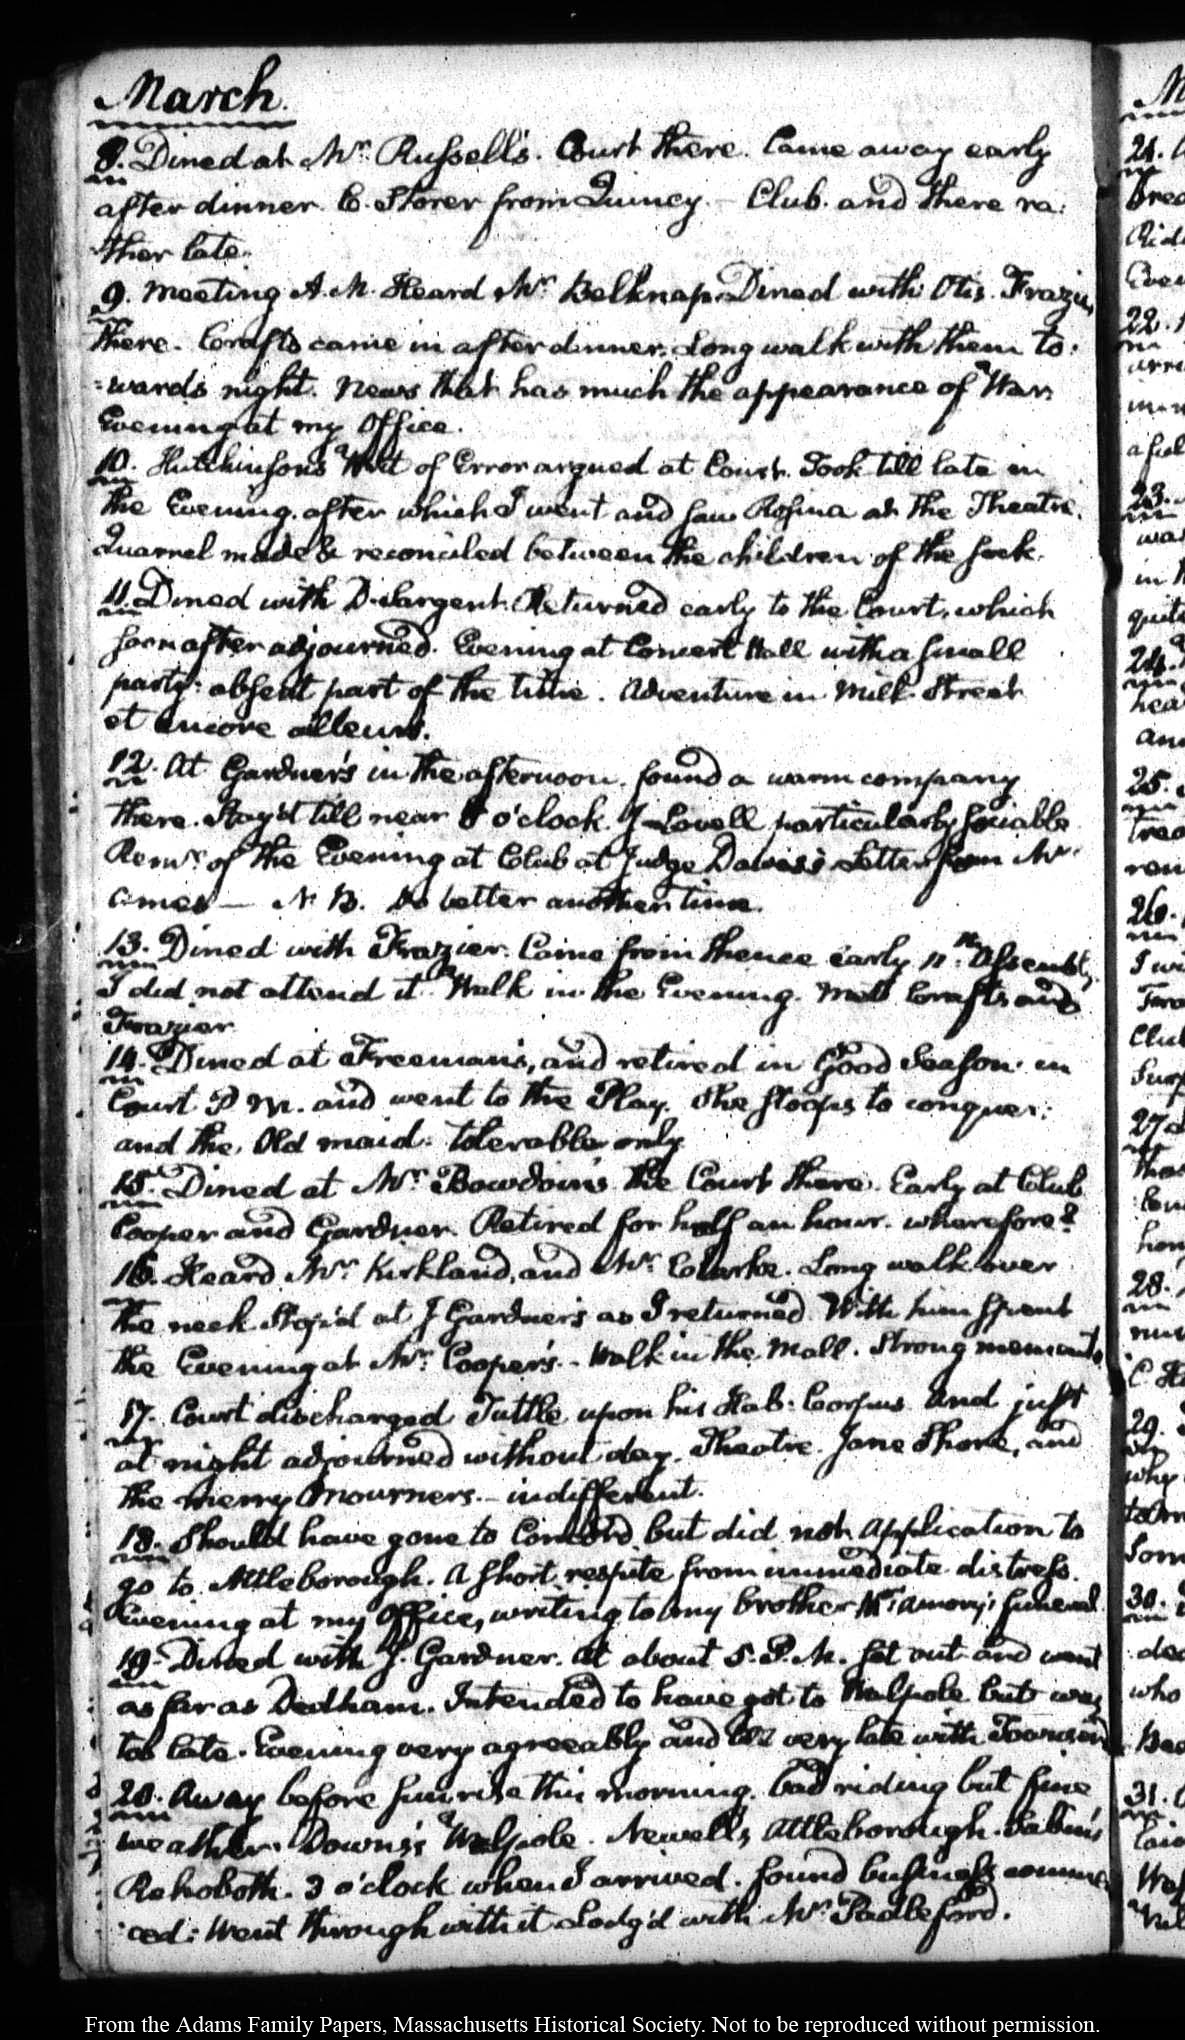 March.
8. Dined at Mr. Russell's. Court there. Came away early
after dinner. C. Storer from Quincy. — Club. and there ra-
ther late.
9. Meeting A.M. Heard Mr. Belknap. Dined with Otis. Frazier
there. Crafts came in after dinner. Long walk with them to-
-wards night. News that has much the appearance of War.
Evening at my Office.
10. Hutchinson's Writ of Error argued at Court. Took till late in
the Evening. after which I went and saw Rosina at the Theatre.
Quarrel made & reconciled between the children of the sock.
11. Dined with D. Sargent. Returned early to the Court, which
soon after adjourned. Evening at Concert Hall with a small
party: absent part of the time. Adventure in Milk Street
et encore ailleurs.
12. At Gardner's in the afternoon. found a warm company
there. Stay'd till near 8 o'clock. J Lovell particularly sociable
Remr. of the Evening at Club at Judge Dawes's Letter from Mr.
Ames — N.B. do better another time.
13. Dined with Frazier. Came from thence early 11th. Assembly,
I did not attend it. Walk in the Evening. Met Crafts and
Frazier.
14. Dined at Freeman's, and retired in Good Season. in
Court P.M. and went to the Play. She stoops to conquer:
and the Old maid: tolerable only.
15. Dined at Mr. Bowdoin's the Court there. Early at Club
Cooper and Gardner. Retired for half an hour. wherefore?
16. Heard Mr. Kirkland, and Mr. Clarke. Long walk over
the neck. Stop'd at J Gardner's as I returned. With him spent
the Evening at Mr. Cooper's. - Walk in the Mall. Strong memento
17. Court discharged Tuttle upon his Hab: Corpus. And just
at night adjourned without day. Theatre. Jane Shore, and
the merry Mourners. — indifferent.
18. Should have gone to Concord, but did not. Application to
go to Attleborough. A short respite from immediate distress.
Evening at my Office, writing to my brother Mr. Amory's funeral
19. Dined with J. Gardner. At about 5. P.M. set out and went
as far as Dedham. Intended to have got to Walpole but was
too late. Evening very agreeably and till very late with
20. Away before sun rise this morning. bad riding but fine
weather. Downs's Walpole. Newell's Attleborough. Sabin's
Rehoboth. 3 o'clock when I arrived. found business commen-
ced: went through with it. Lodg'd with Mr. Padleford.
From the Adams Family Papers, Massachusetts Historical Society. Not to be reproduced without permission.